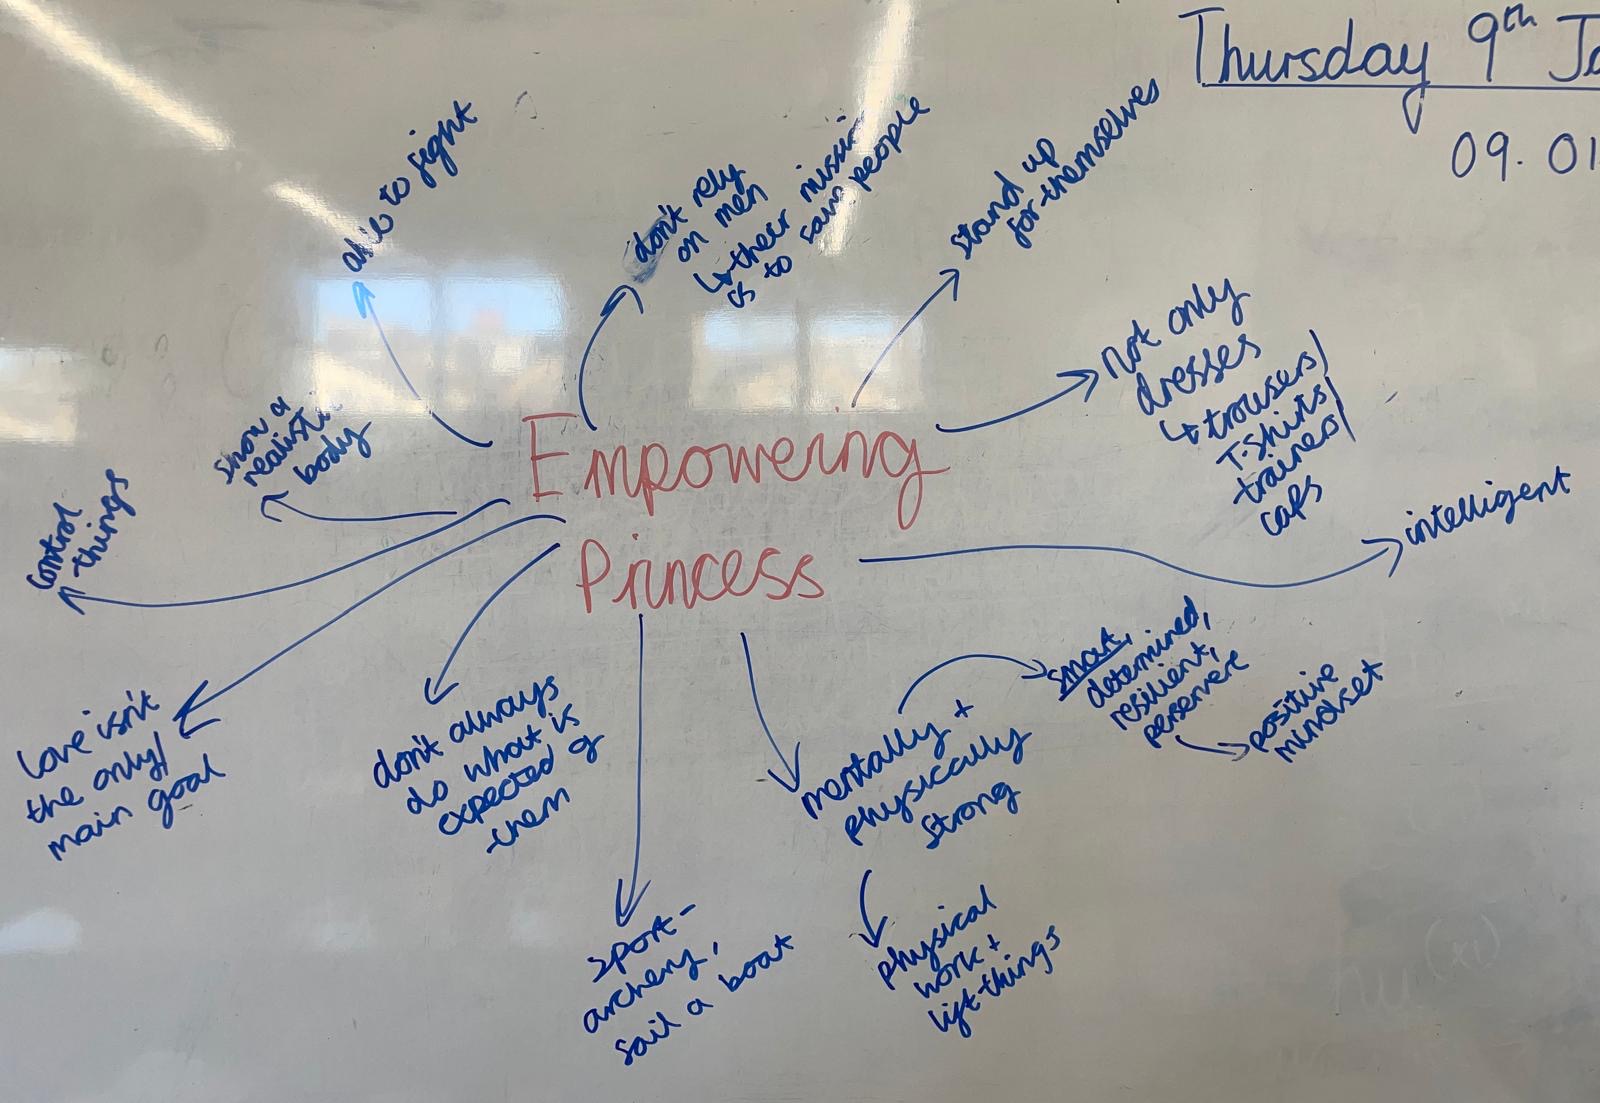 Thursday 9th Ja
09. 01
able to fight
don't rely
on men
↳ their mission
is to save people
stand up
for themselves
not only
dresses
↳ trousers/
T-shirts/
trainers/
caps
show a
realistic
body
Empowering
Princess
control
things
intelligent
love isn't
the only/
main goal
don't always
do what is
expected of
them
sport -
archery,
sail a boat
mentally +
physically
strong
smart,
determined,
resilient,
persevere
positive
mindset
physical
work +
lift things